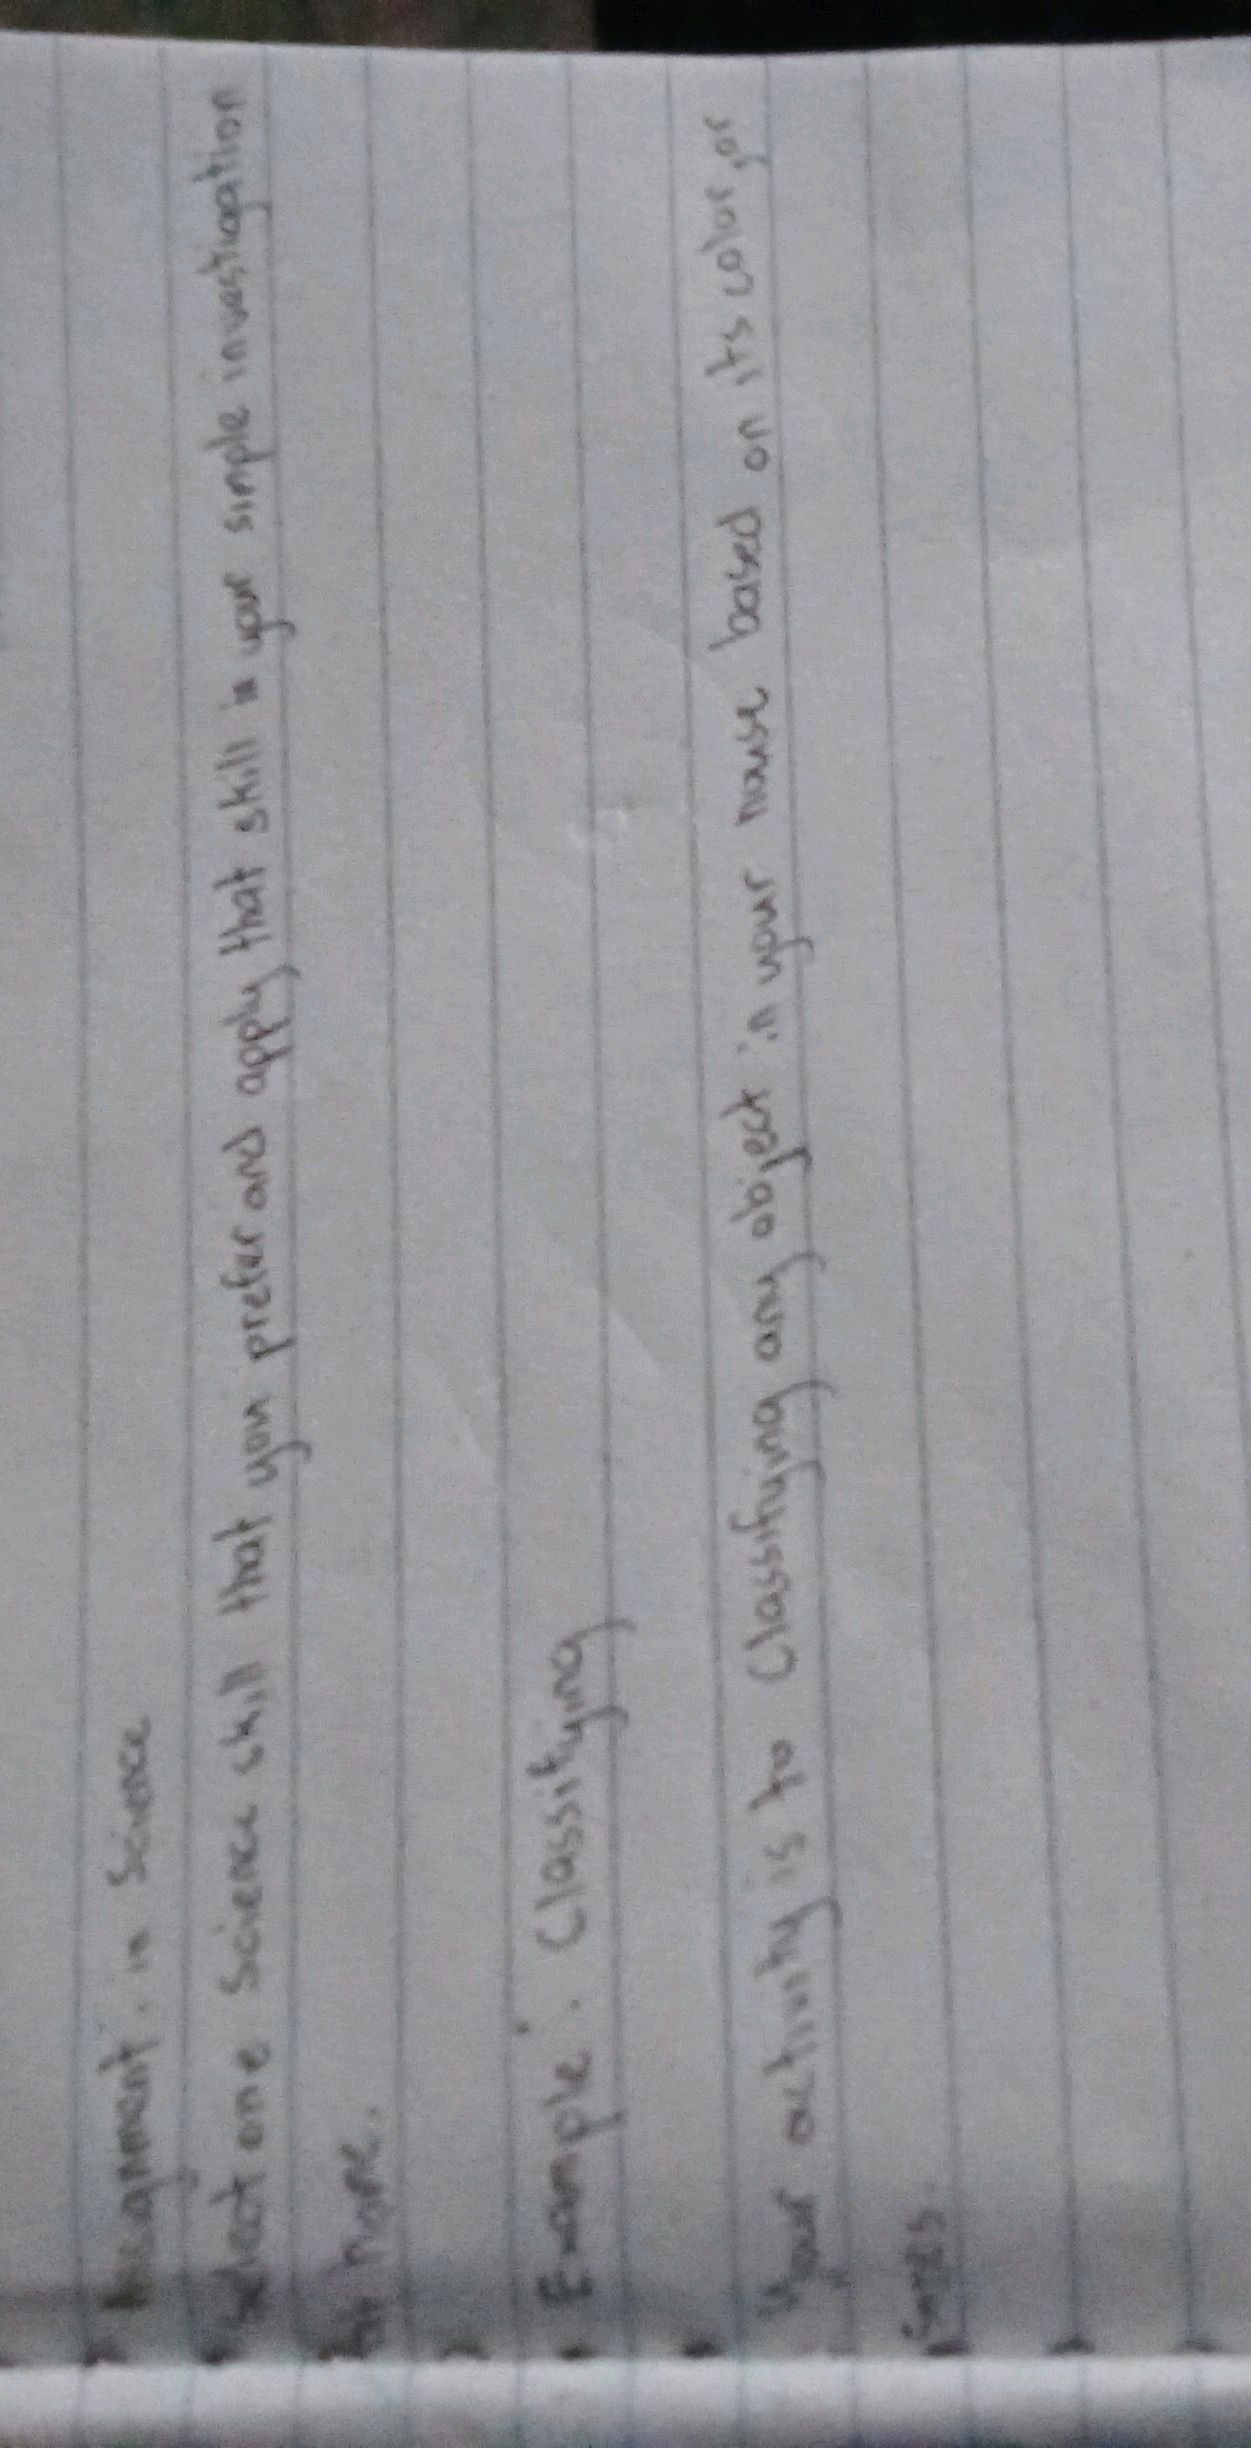 Assignment. in Science
Select one science skill that you prefer and apply that skill in your simple invastigation
at home.
Example: Classifying
Your activity is to Classifying any object in your house based on its color, or
sizes.